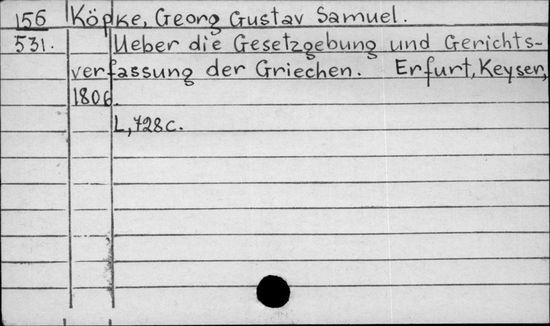 156 Köpke, Georg Gustav Samuel.
531. Ueber die Gesetzgebung und Gerichts-
verfassung der Griechen. Erfurt, Keyser,
1806.
L, 728c.